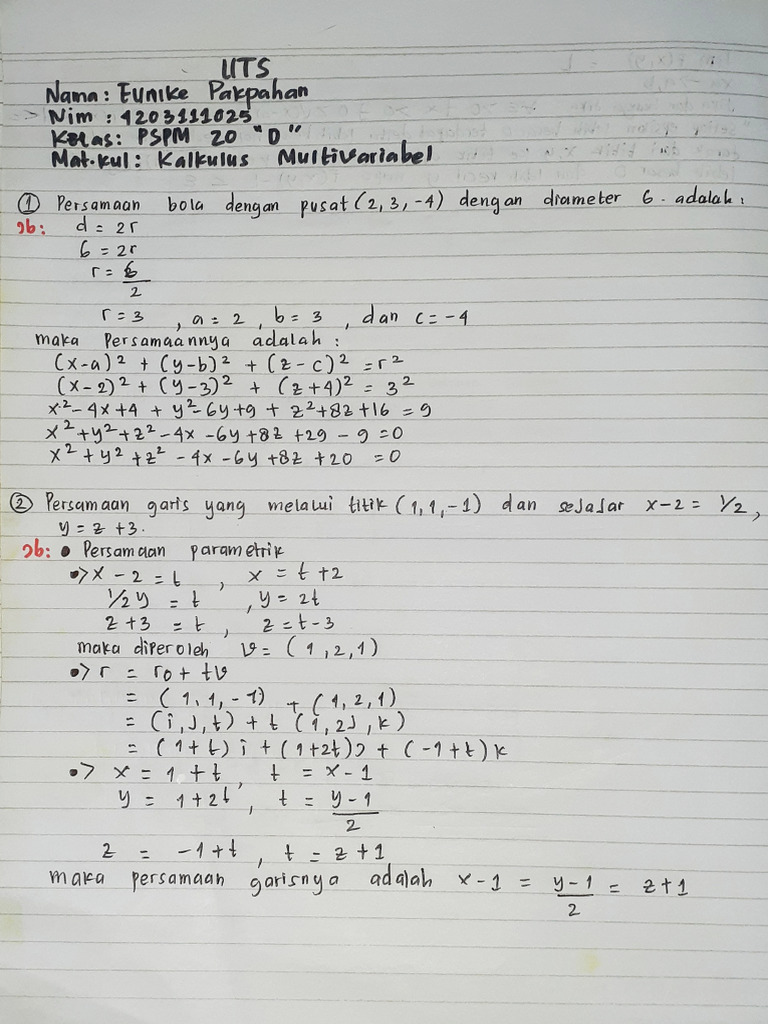 UTS
Nama : Eunike Pakpahan
Nim : 4203111025
Kelas : PSPM 20 "D"
Mat.kul : Kalkulus Multivariabel
① Persamaan bola dengan pusat (2, 3, -4) dengan diameter 6 adalah :
Jb: d = 2r
6 = 2r
r = 6/2
r = 3 , a = 2 , b = 3 , dan c = -4
maka Persamaannya adalah :
(x-a)² + (y-b)² + (z-c)² = r²
(x-2)² + (y-3)² + (z+4)² = 3²
x² - 4x + 4 + y² - 6y + 9 + z² + 8z + 16 = 9
x² + y² + z² - 4x - 6y + 8z + 29 - 9 = 0
x² + y² + z² - 4x - 6y + 8z + 20 = 0
② Persamaan garis yang melalui titik (1, 1, -1) dan sejajar x-2 = 1/2,
y = z + 3.
Jb: • Persamaan parametrik
•> x - 2 = t , x = t + 2
1/2 y = t , y = 2t
z + 3 = t , z = t - 3
maka diperoleh v = (1, 2, 1)
•> r = r0 + tv
= (1, 1, -1) + (1, 2, 1)
= (i, j, t) + t (1, 2j, k)
= (1+t) i + (1+2t) j + (-1+t) k
•> x = 1 + t , t = x - 1
y = 1 + 2t , t = y-1/2
z = -1 + t , t = z + 1
maka persamaan garisnya adalah x - 1 = y-1/2 = z + 1